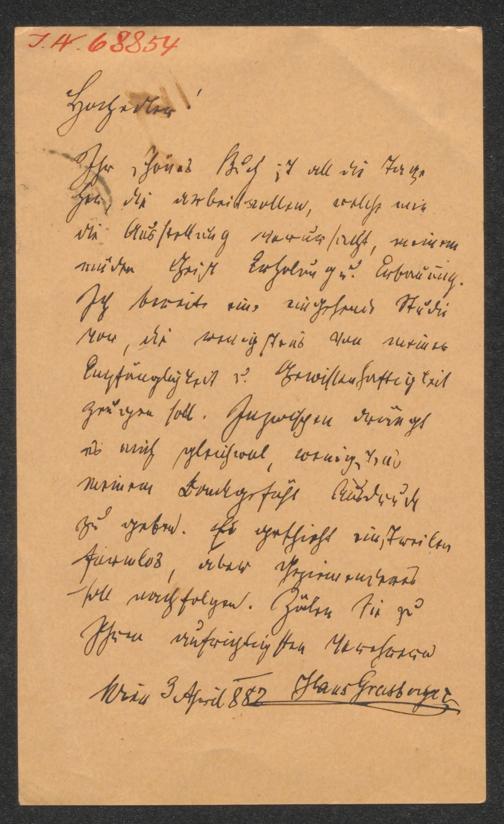 J.N. 68854
Hochedler!
Ihr schönes Buch ist all die Tage
her, die arbeitsvollen, welche mir
die Ausstellung verursacht, meinem
müden Geist Erholung u. Erbauung.
Ich bereite eine eingehende Studie
vor, die wenigstens von meiner
Empfänglichkeit u. Gewissenhaftigkeit
zeugen soll. Inzwischen drängt
es mich gleichwol, wenigstens
meinem Dankgefühl Ausdruck
zu geben. Es geschieht einstweilen
formlos, aber Geziemenderes
soll nachfolgen. Zälen Sie zu
Ihren aufrichtigsten Verehrern
Wien 3 April 882 Hans Grasberger